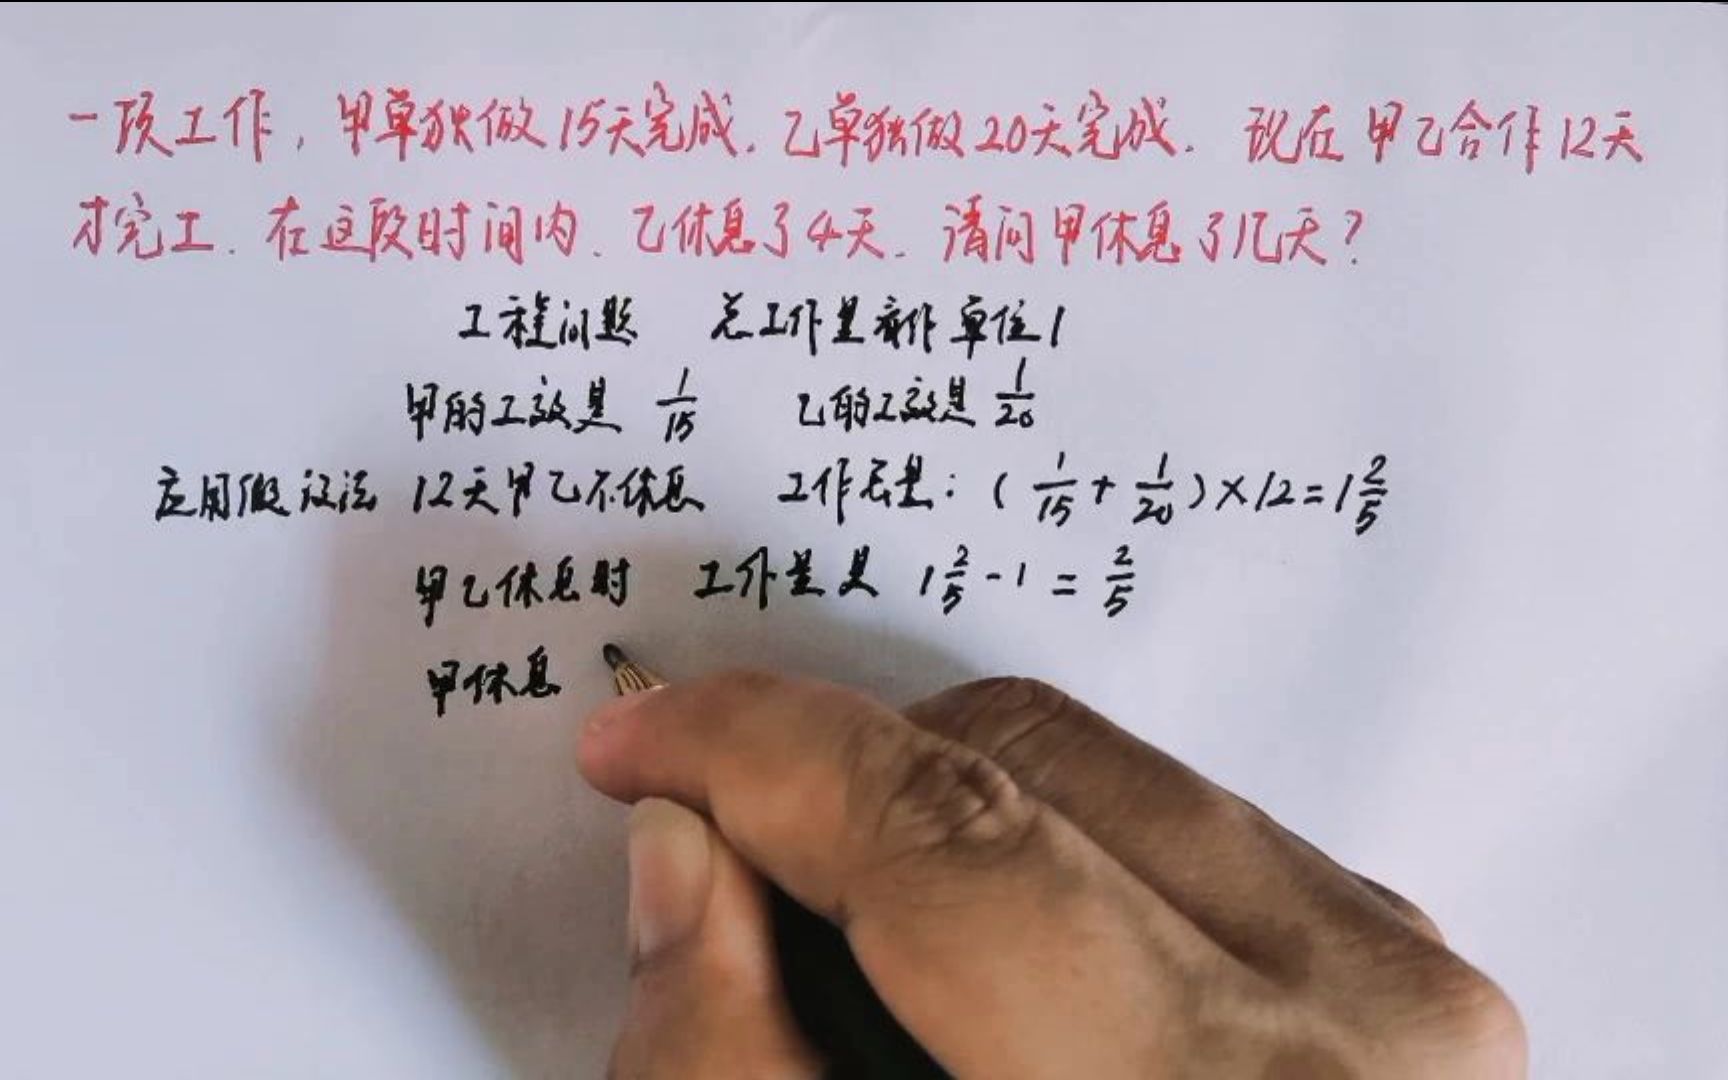 一项工作，甲单独做15天完成．乙单独做20天完成．现在甲乙合作12天
才完工．在这段时间内．乙休息了4天．请问甲休息了几天？
工程问题 总工作量看作单位1
甲的工效是 1/15 乙的工效是 1/20
应用假设法 12天甲乙不休息 工作总量：(1/15+1/20)×12=1 2/5
甲乙休息时 工作量是 1 2/5-1=2/5
甲休息